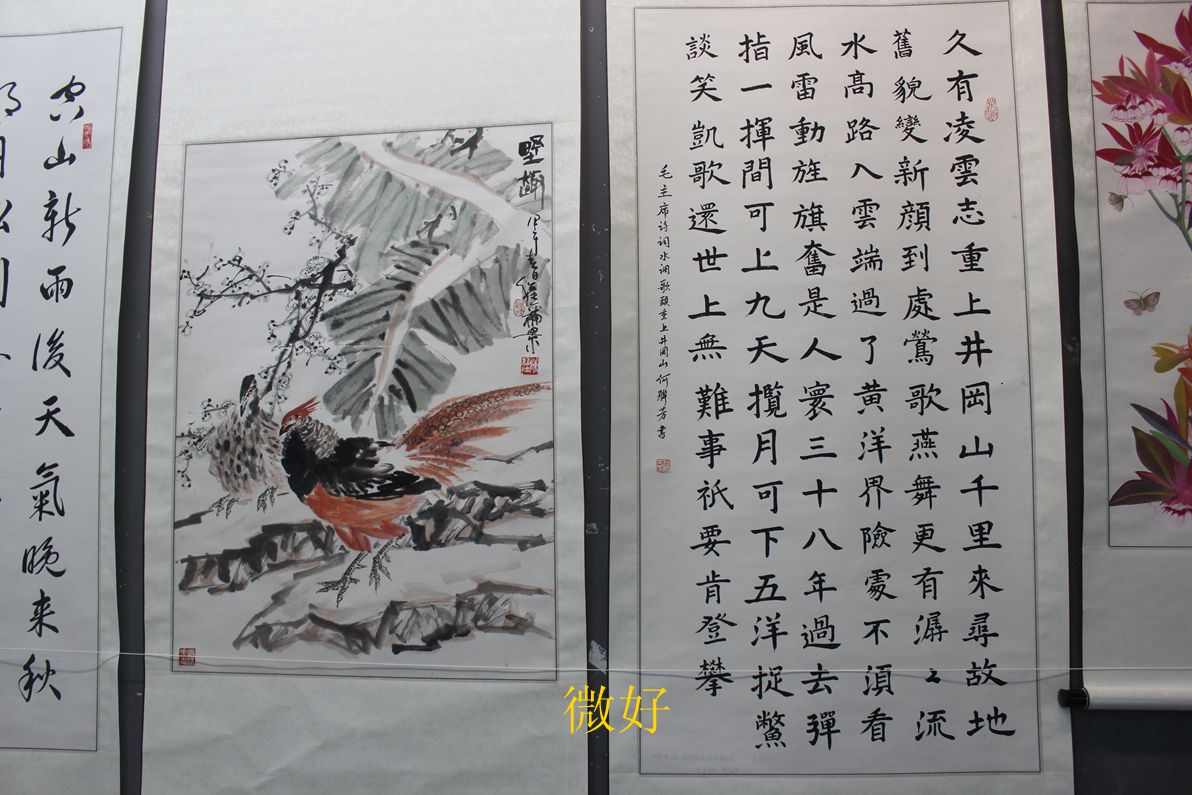 久有凌雲志重上井岡山千里來尋故地
舊貌變新顔到處鶯歌燕舞更有潺々流
水高路入雲端過了黄洋界險處不須看
風雷動旌旗奮是人寰三十八年過去彈
指一揮間可上九天攬月可下五洋捉鱉
談笑凱歌還世上無難事衹要肯登攀
毛主席诗词水调歌頭重上井冈山 何芳書
野趣
甲午春
空山新雨後天氣晚来秋
明月松間
微好